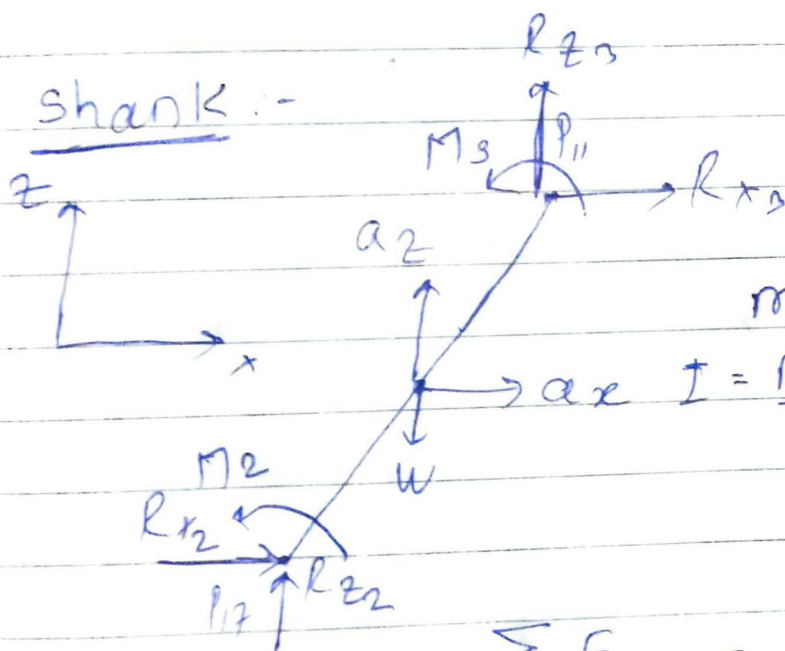 Shank :-
Rz3
M3 P11
Rx3
z
az
x
m
ax I =
W
M2
Rx2
Rz2
P17
ΣF